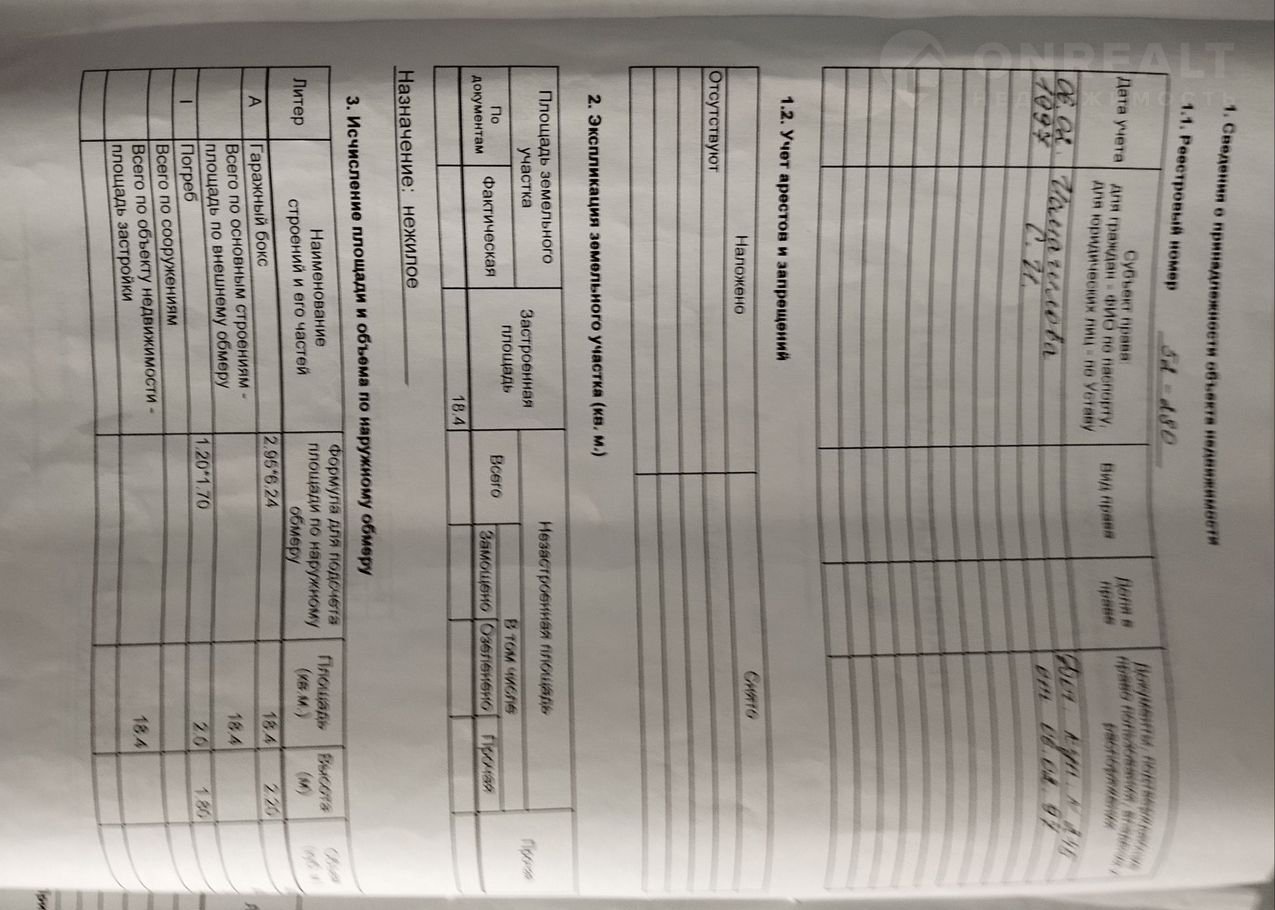 ONREALT
НЕДВИЖИМОСТЬ
1. Сведения о принадлежности объекта недвижимости
1.1. Реестровый номер
Дата учета
Субъект права:
для граждан - ФИО по паспорту,
для юридических лиц - по Уставу
Вид права
Доля в
права
06.02.
1997
С. И.
от 06.02.97
1.2. Учет арестов и запрещений
Наложено
Снято
Отсутствуют
2. Экспликация земельного участка (кв. м.)
Площадь земельного
участка
Застроенная
площадь
Незастроенная площадь
Прочая
По
документам
Фактическая
Всего
В том числе
Замощено
Озеленено
Прочая
18.4
Назначение: нежилое
3. Исчисление площади и объема по наружному обмеру
Литер
Наименование
строений и его частей
Формула для подсчета
площади по наружному
обмеру
Площадь
(кв.м.)
Высота
(м)
А
Гаражный бокс
2.95*6.24
18.4
2.20
Всего по основным строениям -
площадь по внешнему обмеру
18.4
I
Погреб
1.20*1.70
2.0
1.80
Всего по сооружениям
Всего по объекту недвижимости -
площадь застройки
18.4